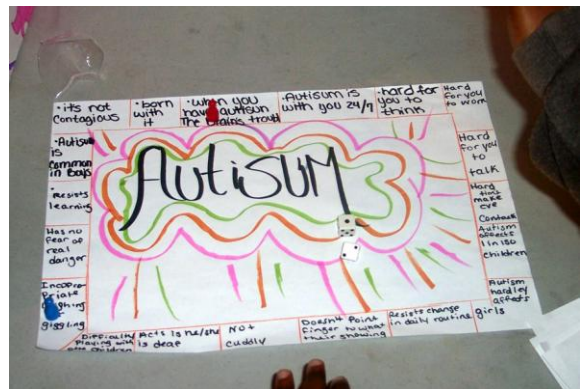 • its not
Contagious
• born
with
it
• when you
have autisum
The brain's troubl
• Autisum is
with you 24/7
• hard for
you to
think
Hard
for you
to work
Hard
for you
to
talk
Hard
time
make
eye
Contact
Autism
affects
1 in 150
children
Autism
hardley
affects
girls
Resists change
in daily routine
Doesn't Point
finger to what
their showing
Not
cuddly
Acts is he/she
is deaf
Difficulty
Playing with
children
giggling
Has no
fear of
real
danger
• Resists
learning
• Autisum
is
common
in Boys
AUTiSUM